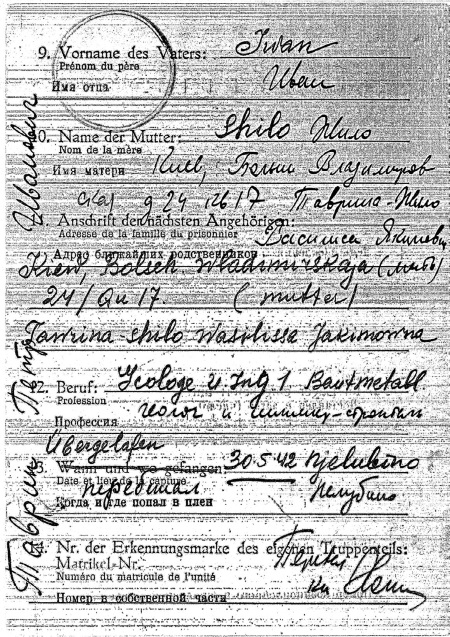 9. Vorname des Vaters: Iwan
Prénom du père
Имя отца Иван
10. Name der Mutter: Shilo Жило
Nom de la mère
Имя матери Киев, Больш Владимиров
ская д 24 кв 17 Таврина-Жило
11. Anschrift der nächsten Angehörigen:
Adresse de la famille du prisonnier
Василиса Якимовн
Адрес ближайших родственников
Kiew, Bolsch. Wladimirskaja (мать)
24/Qu 17. (mutter)
Tawrina-Shilo Wasilissa Jakimowna
12. Beruf: u Ing
Profession
Профессия
Übergelafen
13. Wann und wo gefangen: 30.5.42
Date et lieu de la capture
Когда и где попал в плен
14. Nr. der Erkennungsmarke des eigenen Truppenteils:
Matrikel-Nr.
Numéro du matricule de l'unité
Номер в собственной части
Таврин Петр Иванович